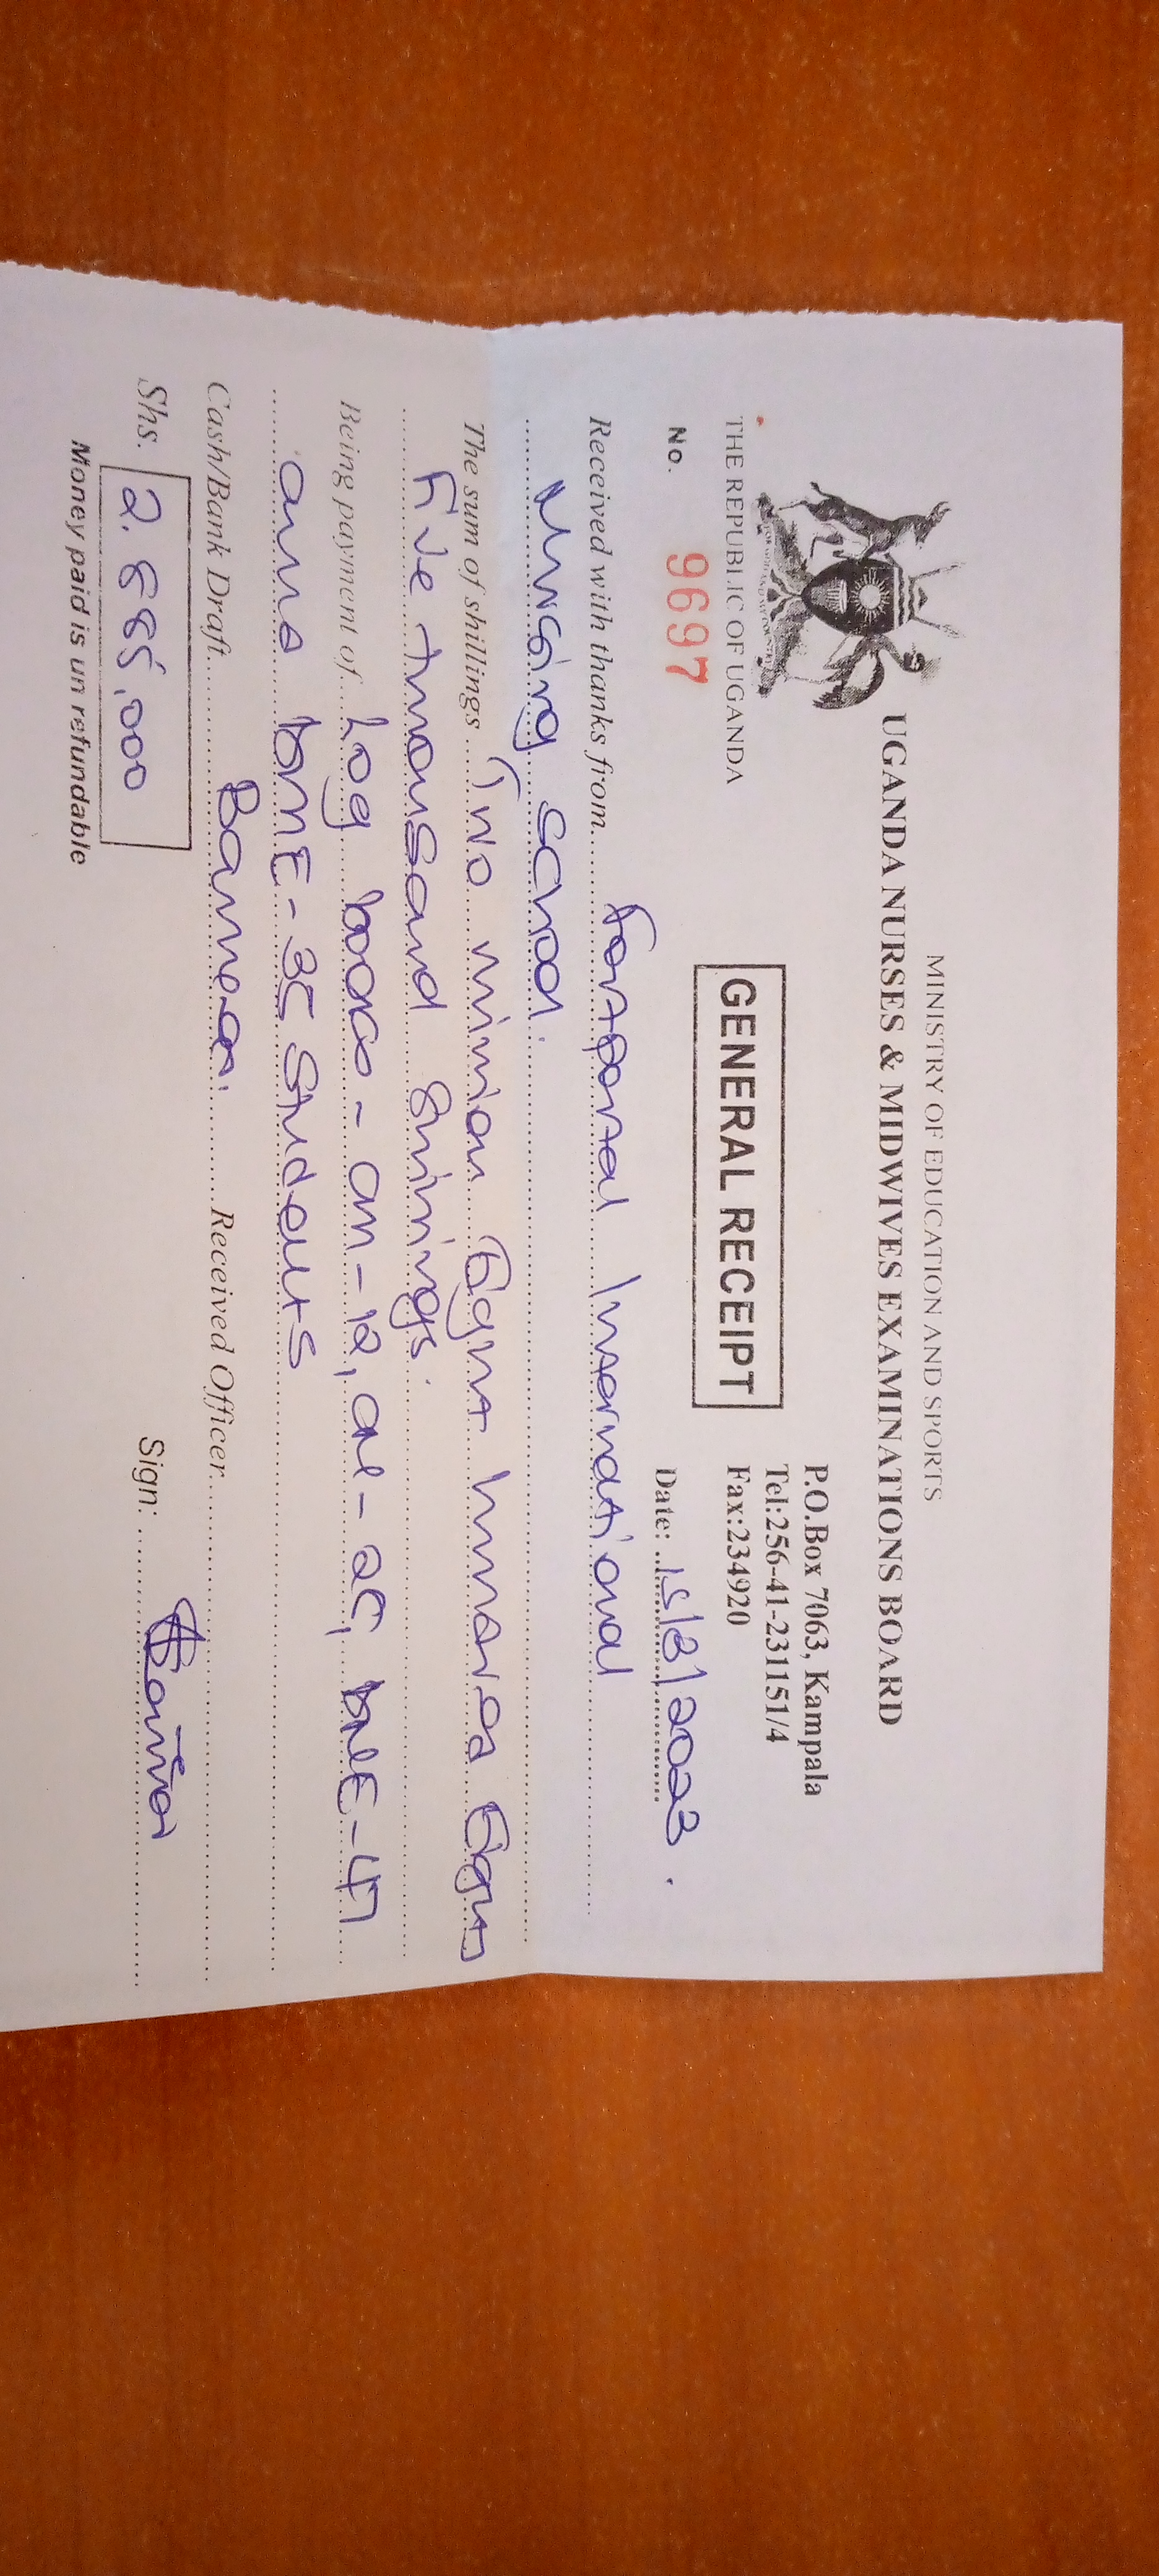 MINISTRY OF EDUCATION AND SPORTS
UGANDA NURSES & MIDWIVES EXAMINATIONS BOARD
THE REPUBLIC OF UGANDA
GENERAL RECEIPT
P.O.Box 7063, Kampala
Tel:256-41-231151/4
Fax:234920
No. 9697
Date: 15/8/2023.
Received with thanks from Fortportal International
Nursing School.
The sum of shillings Two million Eight hundred Eighty
Five thousand shillings.
Being payment of Log books - cm-12, cn-25, DNE-47
and DME-35 Students
Cash/Bank Draft Banked. Received Officer
Shs. 2.885,000
Sign:
Money paid is un refundable